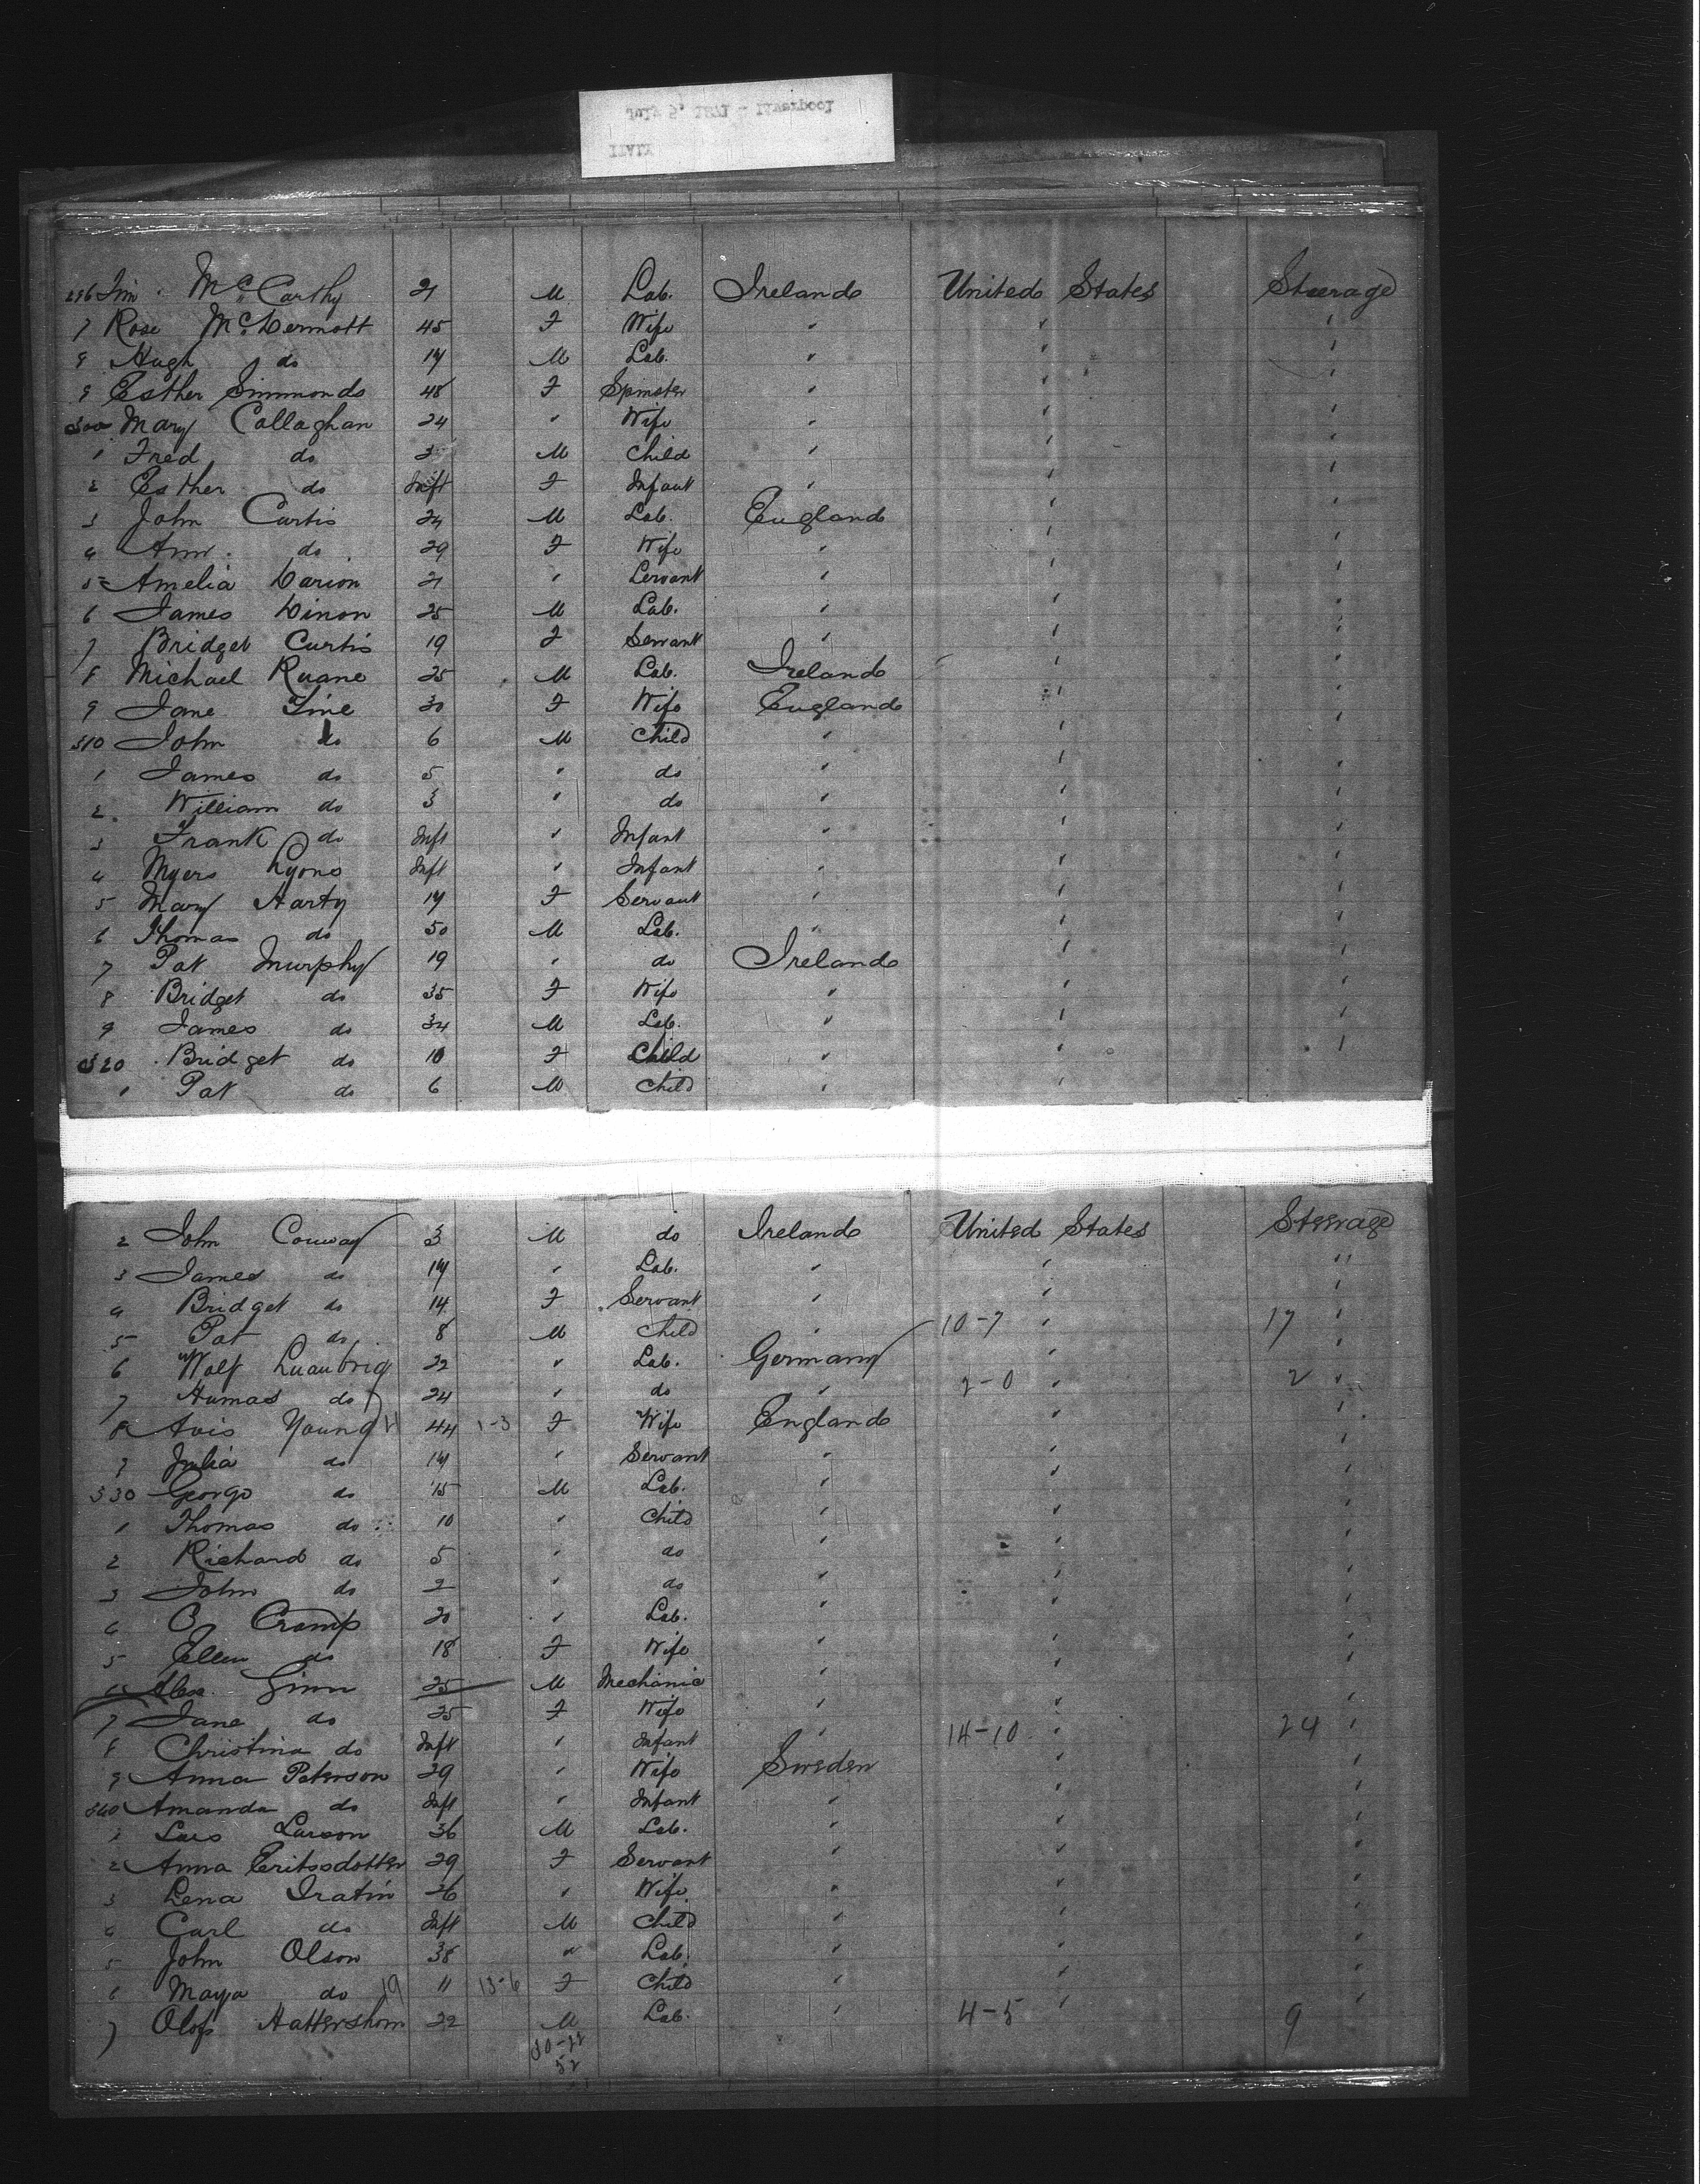 296 Jim McCarthy 21 M Lab. Ireland United States Steerage
7 Rose McDermott 45 F Wife " " "
8 Hugh do 17 M Lab. " " "
9 Esther Simmonds 48 F Spinster " " "
300 Mary Callaghan 24 " Wife " " "
1 Fred do 3 M Child " " "
2 Esther do Inft F Infant " " "
3 John Curtis 24 M Lab. England " "
4 Ann do 29 F Wife " " "
5 Amelia Darion 21 " Servant " " "
6 James Dinon 25 M Lab. " " "
7 Bridget Curtis 19 F Servant " " "
8 Michael Ruane 25 M Lab. Ireland " "
9 Jane Line 30 F Wife England " "
310 John do 6 M Child " " "
1 James do 5 " do " " "
2 William do 3 " do " " "
3 Frank do Inft " Infant " " "
4 Myers Lyons Inft " Infant " " "
5 Mary Harty 17 F Servant " " "
6 Thomas do 50 M Lab. " " "
7 Pat Murphy 19 " do Ireland " "
8 Bridget do 35 F Wife " " "
9 James do 34 M Lab. " " "
320 Bridget do 10 F Child " " "
1 Pat do 6 M Child " "
2 John Conway 3 M do Ireland United States Steerage
3 James do 17 " Lab. " " "
4 Bridget do 14 F Servant " " "
5 Pat do 8 M Child " 10-7 " 17 "
6 Wolf 22 " Lab. Germany " "
7 do 24 " do " 2-0 " 2 "
8 Avis Young 44 1-3 F Wife England " "
9 Julia do 17 " Servant " " "
330 George do 15 M Lab. " " "
1 Thomas do 10 " Child " " "
2 Richard do 5 " do " " "
3 John do 2 " do " " "
4 C Cramp 20 " Lab. " " "
5 Ellen do 18 F Wife " " "
6 Alex. Ginn 25 M Mechanic " " "
7 Jane do 25 F Wife " " "
8 Christina do Inft " Infant " 14-10 " 24 "
9 Anna Peterson 29 " Wife Sweden " "
340 Amanda do Inft " Infant " " "
1 Lars Larson 36 M Lab. " " "
2 Anna Eritssdotter 29 F Servant " " "
3 Lena Iratin 26 " Wife " " "
4 Carl do Inft M Child " " "
5 John Olson 38 " Lab. " " "
6 Maya do 19 11 13-6 F Child " " "
7 Olof Hattershom 22 M Lab. " 4-5 " 9
30-22
52